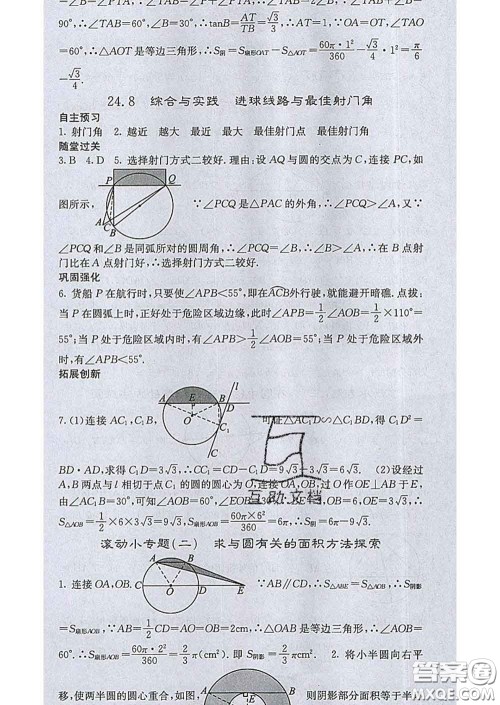 −∠B=∠PTA,∴∠TAB+∠PTA=∠PTA+∠TAB=2∠B,∴∠TAB=
90°,∴∠TAO=60°,∴∠B=30°,∴tanB=AT/TB=√3/3,∴AT=1.∵OA=OT,∠TAO
=60°,∴△AOT是等边三角形,∴S阴=S扇形OAT−S△AOT=60π·1²/360−√3/4·1²=π/6
−√3/4.
24.8 综合与实践 进球线路与最佳射门角
自主预习
1. 射门角 2. 越近 越大 最近 最大 最佳射门点 最佳射门角
随堂过关
3. B 4. D 5. 选择射门方式二较好. 理由:设AQ与圆的交点为C,连接PC,如
P Q C B
图所示, ∵∠PCQ是△PAC的外角,∴∠PCQ>∠A,又∵
∠PCQ和∠B是同弧所对的圆周角,∴∠PCQ=∠B,∴∠B>∠A,∴在B点射
门比在A点射门好,∴选择射门方式二较好.
巩固强化
6. 货船P在航行时,只要使∠APB<55°,即在ACB外行驶,就能避开暗礁. 点拨:
当P在圆弧上时,正好处于危险区域边缘,此时∠APB=1/2∠AOB=1/2×110°=
55°;当P处于危险区域内时,有∠APB>1/2∠AOB=55°;当P处于危险区域外
时,有∠APB<55°.
拓展创新
A E B D l O C₁ C
7. (1)连接AC₁,C₁B, 可证△AC₁D∽△C₁BD,得C₁D²=
BD·AD,求得C₁D=3√3,∴CC₁=CD−C₁D=9√3−3√3=6√3. (2)设经过
A,B两点与l相切于点C₁的圆的圆心为O,连接OA,OB,过O作OE⊥AB于E,
由∠AC₁B=30°,可知∠AOB=60°,∴∠EOB=30°,∵BE=3,∴OB=6,OE=3√3,∴
S△AOB=1/2×6×3√3=9√3,∵S扇形AOB=60π×6²/360=6π,∴S阴影=6π−9√3.
滚动小专题(二) 求与圆有关的面积方法探索
A B C O D E
1. 连接OA,OB, ∵AB∥CD,∴S△ABE=S△AOB,∴S阴影
=S扇形AOB,∵AB=1/2CD=AO=BO=2cm,∴△OAB是等边三角形,∴∠AOB=
60°.∴S扇形AOB=60π·2²/360=2/3π(cm²). 即S阴影=2/3π. 2. 将小半圆向右平
移,使两半圆的圆心重合,如图, 则阴影部分面积等于半
互助文档
答案圈
MXQE.COM